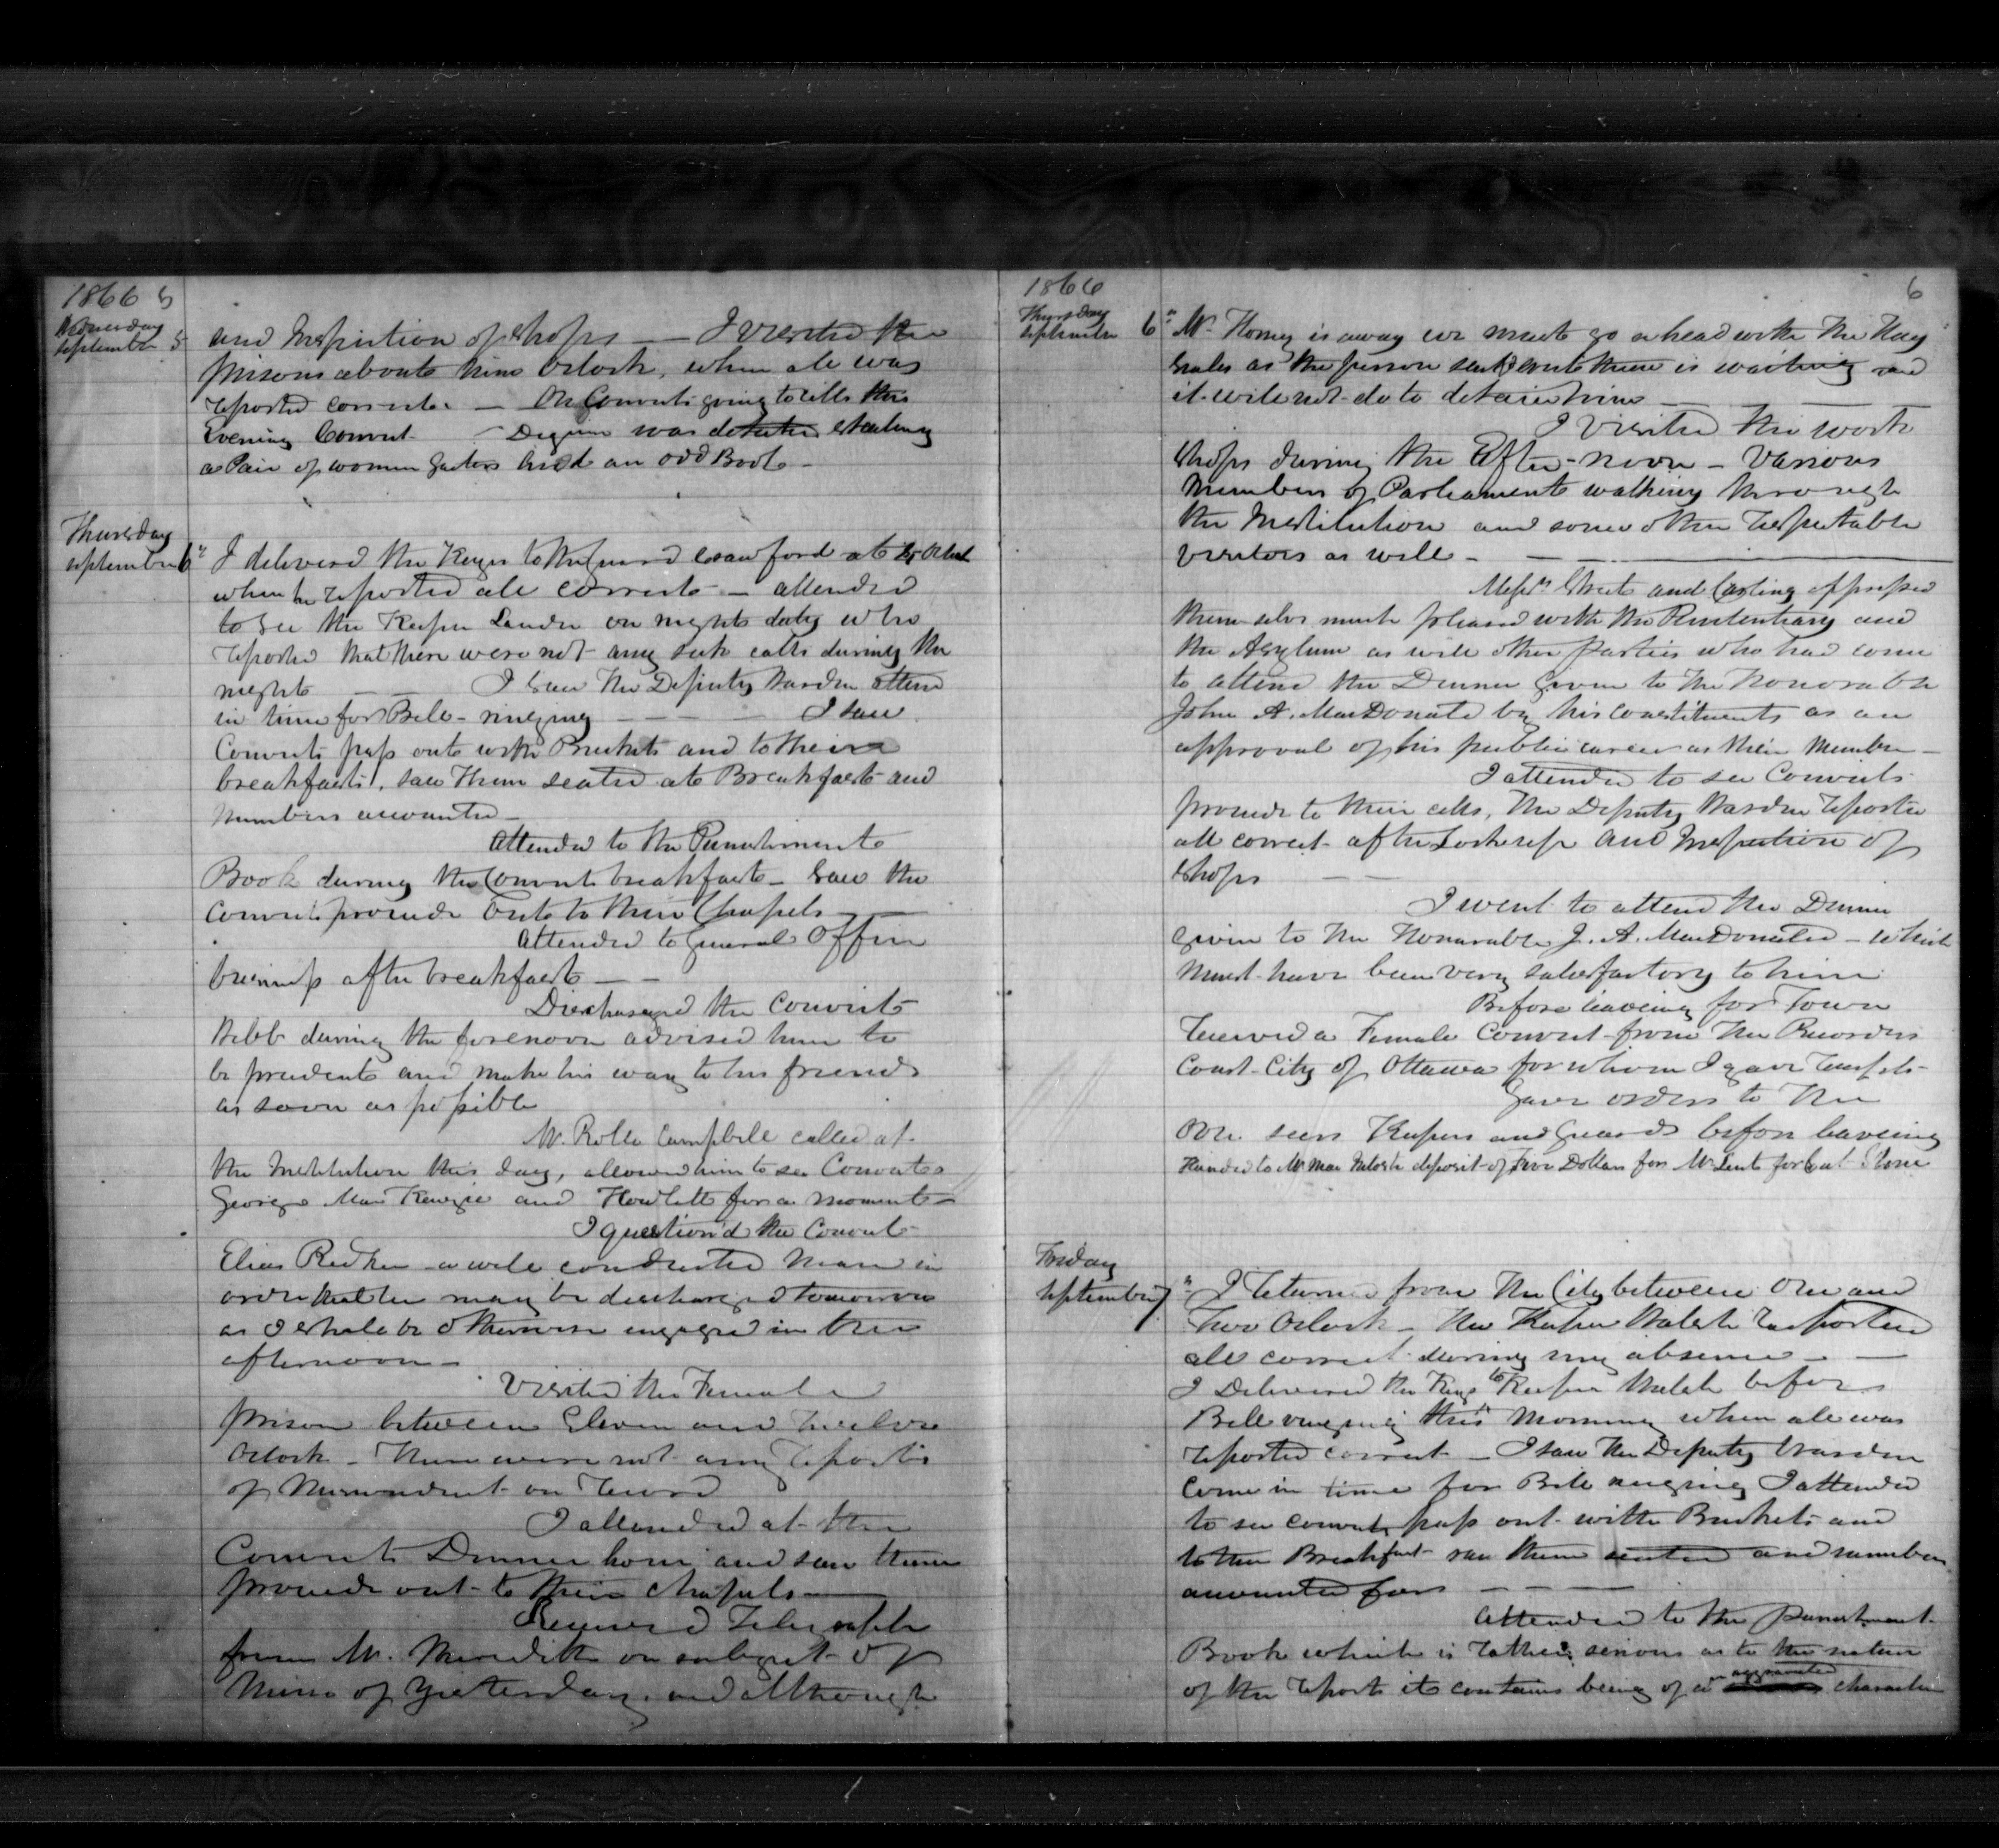 1866 5
Wednesday
September 5
and Inspection of shops — I visited the
prisons about nine Oclock, when all was
reported correct. — On Convicts going to cells this
Evening Convict Deguire was detected stealing
a Pair of women Gaiters and an odd Boot —
Thursday
September 6" I delivered the Keyes to the Guard Crawford at 5 Oclock
when he reported all correct — attended
to see the Keeper Lauder on nights duty who
reported that there were not any sick calls during the
night — — I saw the Deputy Warden attend
in time for Bell-ringing — — — I saw
Convicts pass out with Buckets and to their
breakfasts, saw them seated at Breakfast and
numbers accounted —
Attended to the Punishment
Book during the Convicts breakfast — saw the
Convicts proceede out to their Chapels —
Attended to General Office
business after breakfast — —
Discharged the Convict
Bibb during the forenoon advised him to
be prudent and make his way to his friends
as soon as possible
Mr. Rollo Campbell called at
the Institution this day, allowed him to see Convicts
George MacKenzie and Howlett for a moment —
I question'd the Convict
Elias Redker a well conducted Man in
order that he may be discharged tomorrow
as I shall be otherwise engaged in the
afternoon —
Visited the Female
prison between Eleven and Twelve
Oclock — There were not any reports
of Misconduct on record
I attended at the
Convicts Dinner hour and saw them
proceede out to their chapels —
Received Telegraph
from Mr. Meredith on subject of
Mine of yesterday, and although
1866 6
Thursday
September 6" Mr. Horsey is away we must go ahead with the Hay
Scales as the person sent about these is waiting and
it will not do to detain him — —
I visited the work
shops during the After-noon — Various
Members of Parliament walking through
the Institution and some other respectable
visitors as well — —
Messrs Street and Carling expressed
themselves much pleased with the Penitentiary and
the Asylum as well other parties who had come
to attend the Dinner given to the Honorable
John A. MacDonald by his constituents as an
approval of his public career as their Member —
I attended to see Convicts
proceede to their cells, The Deputy Warden reported
all correct after Lockup and Inspection of
shops — —
I went to attend the Dinner
given to the Honorable J. A. MacDonald — which
must have been very satisfactory to him
Before leaving for Town
received a Female Convict from the Recorders
Court City of Ottawa for whom I gave receipt —
Gave orders to the
Overseers Keepers and Guards before leaving
Handed to Mr. deposit of Two Dollars for Mr. for Cut Stone
Friday
September 7" I returned from the City between One and
Two Oclock — the Keeper Walsh reported
all correct during my absence — —
I Delivered the Keys to Keeper before
Bell ringing this Morning when all was
reported correct — I saw the Deputy Warden
Come in time for Bell ringing I attended
to see convicts pass out with Buckets and
to their Breakfast saw them seated and numbers
accounted for — — —
Attended to the Punishment
Book which is rather serious as to the nature
of the reports it contains being of a aggravated character